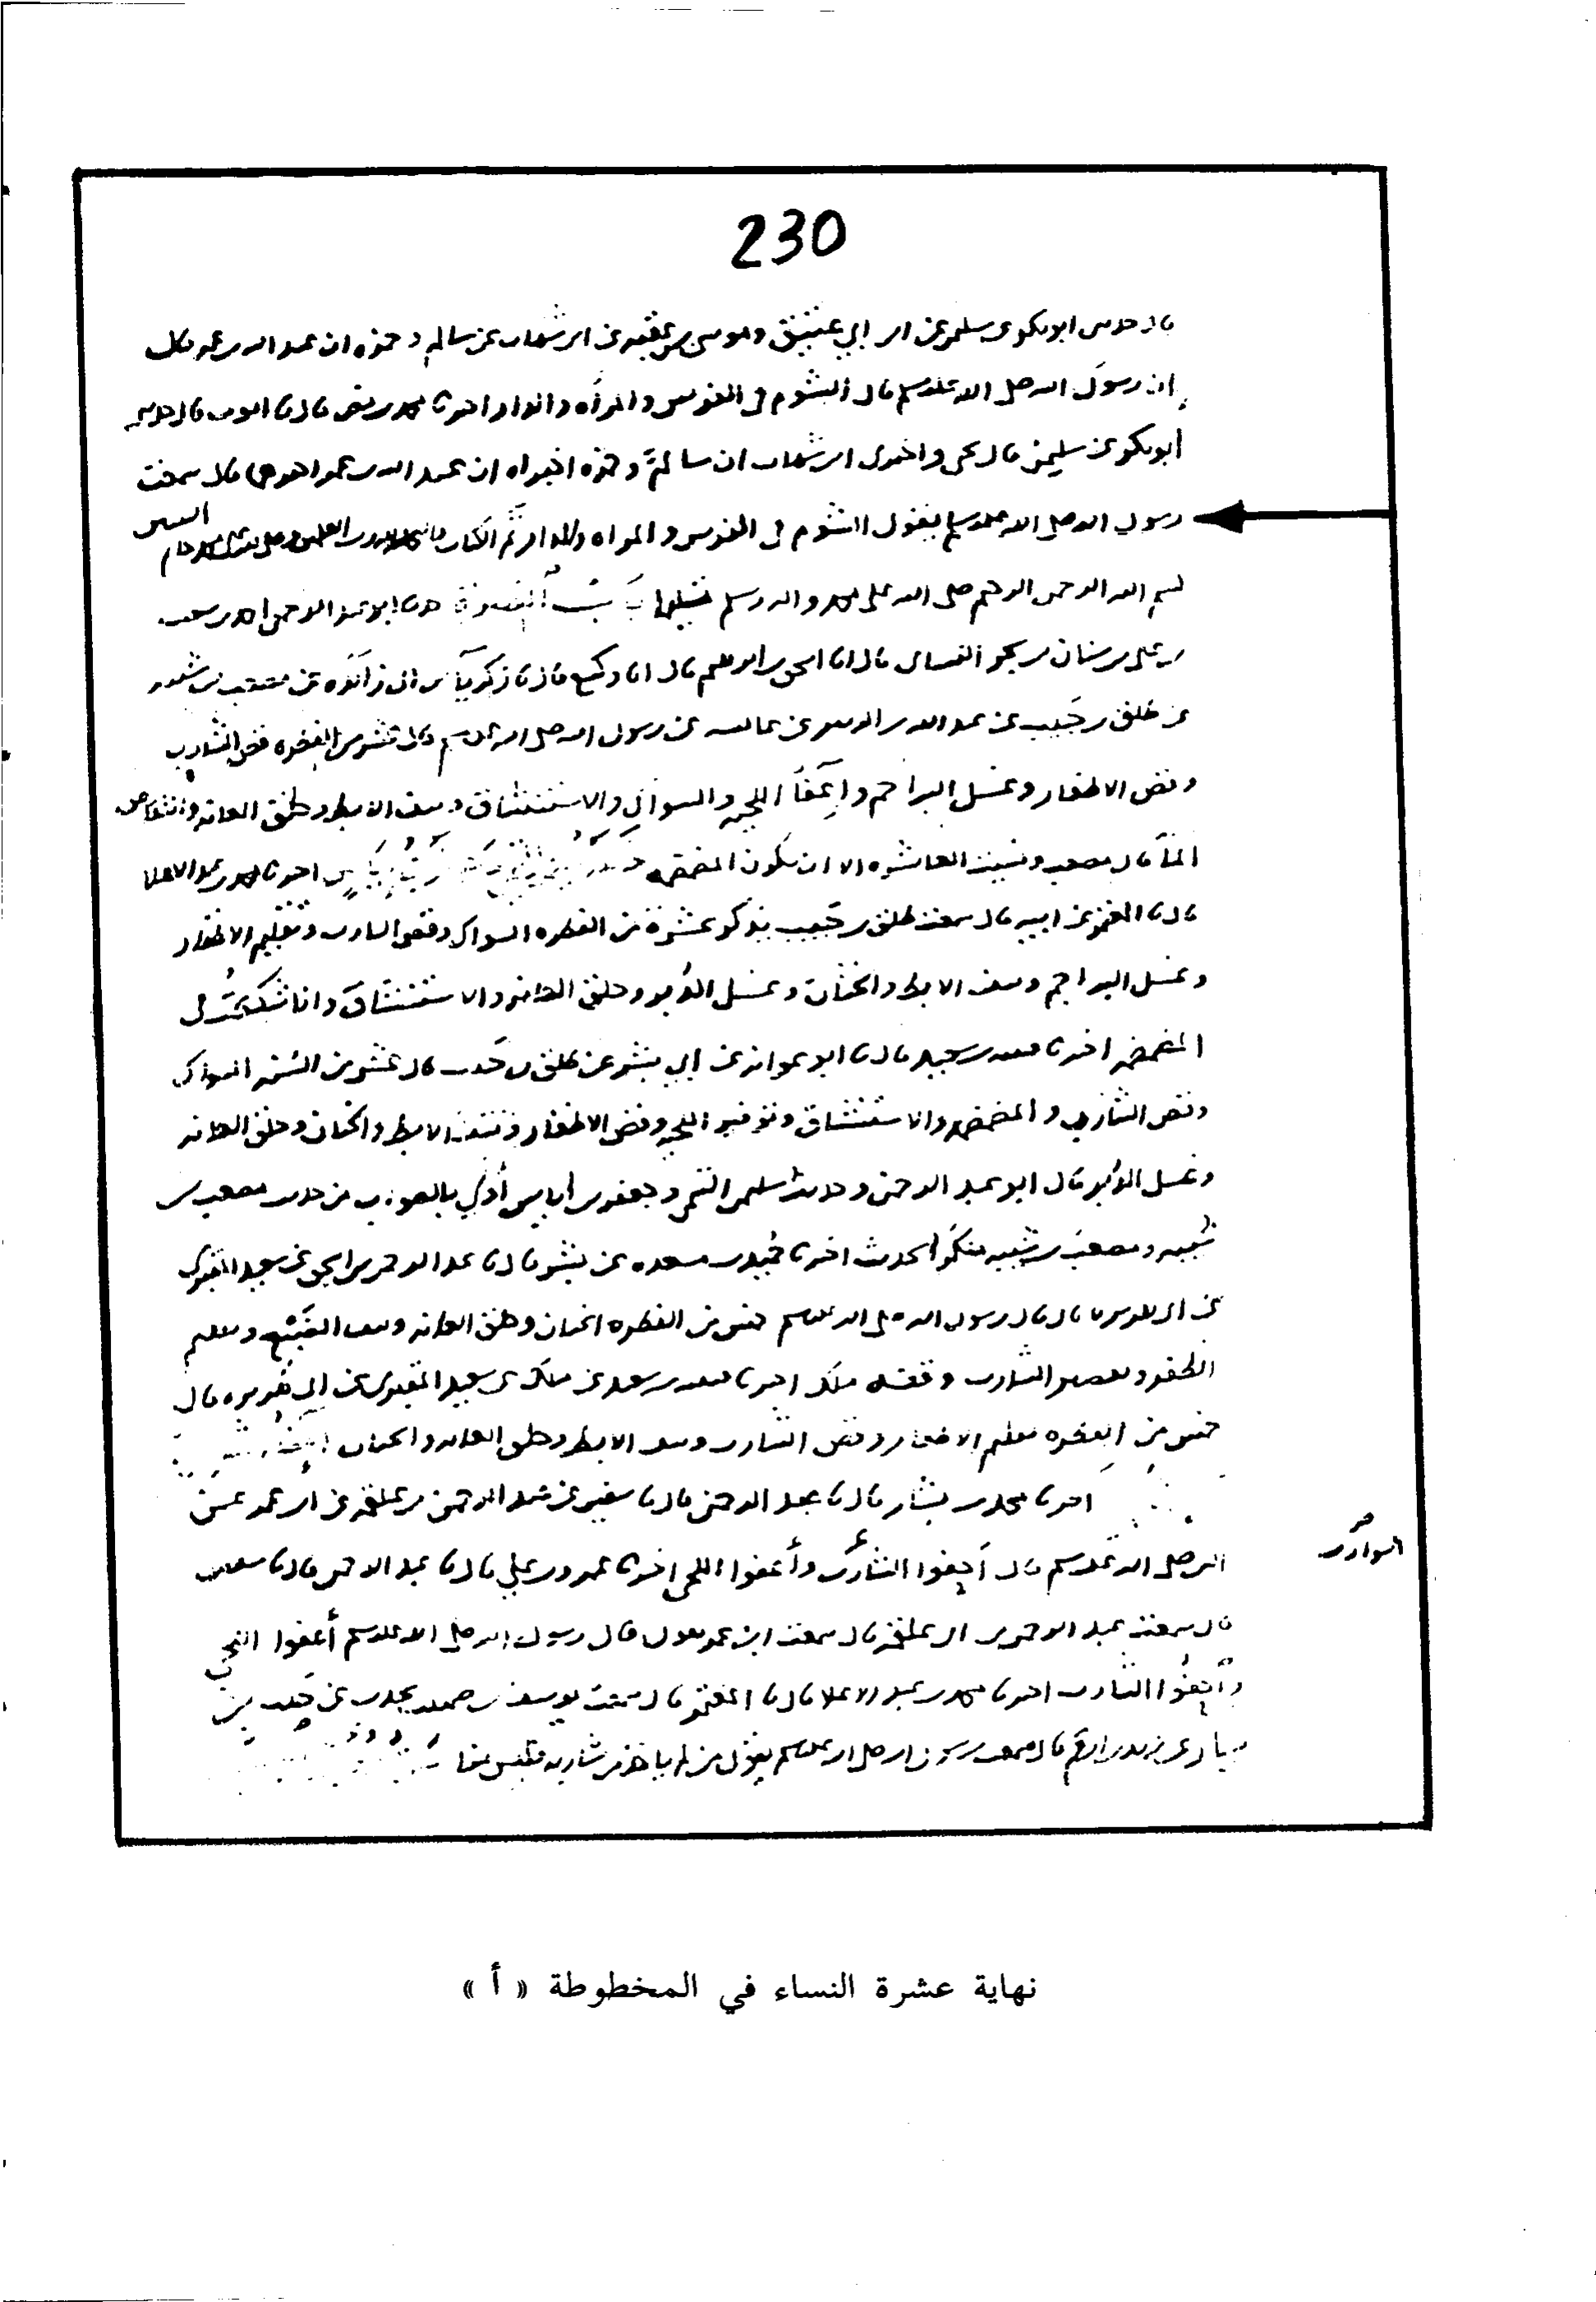 230
قال حدثني ابو بكر عن سليمن عن ابن ابي عتيق وموسى بن عقبه عن ابن شهاب عن سالم وحمزه ان عبد الله بن عمر قال
ان رسول الله صلى الله عليه وسلم قال الشوم في الفرس والمرأه والدار اخبرنا محمد بن نصر قال نا ايوب قال حدثني
أبو بكر عن سليمن قال يحيى واخبرني ابن شهاب ان سالمًا وحمزه اخبراه ان عبد الله بن عمر قال سمعت
رسول الله صلى الله عليه وسلم يقول الشوم في الفرس والمراه والدار تم الكتاب
بسم الله الرحمن الرحيم صلى الله على محمد واله وسلم الفطرة حدثنا ابو عبد الرحمن احمد بن شعيب
بن علي بن سنان بن بحر النسائي قال انا اسحق بن ابرهيم قال انا وكيع قال نا زكريآ بن ابي زائده عن مصعب بن شيبه
عن طلق بن حَبيب عن عبد الله بن الزبير عن عائشه عن رسول الله صلى الله عليه وسلم قال عشر من الفطره قص الشارب
وقص الاظفار وغسل البراجم وإعفآ اللحيه والسواك والاستنشاق ونتف الابط وحلق العانه وانتقاص
المآ قال مصعب ونسيت العاشره الا ان تكون المضمضه اخبرنا محمد بن عبد الاعلا
قال نا المعتمر عن ابيه قال سمعت طلق بن حَبيب يذكر عشرة من الفطره السواك وقص الشارب وتقليم الاظفار
وغسل البراجم ونتف الابط والختان وغسل الدُبر وحلق العانه والاستنشاق وانا شككتُ في
المضمضه اخبرنا قتيبه بن سعيد قال نا ابو عوانه عن ابي بشر عن طلق بن حَبيب قال عشر من السُنه السواك
وقص الشارب والمضمضه والاستنشاق وتوفير اللحيه وقص الاظفار ونتف الابط والختان وحلق العانه
وغسل الدُبر قال ابو عبد الرحمن وحديث سليمن التيمي وجعفر بن اياس أولى بالصواب من حديث مصعب بن
شيبه ومصعب بن شيبه منكر الحديث اخبرنا حُميد بن مسعده عن بشر قال نا عبد الرحمن بن اسحق عن سعيد المقبري
عن ابي هريره قال قال رسول الله صلى الله عليه وسلم خمس من الفطره الختان وحلق العانه ونتف الضَبْع وتقليم
الظفر وتقصير الشارب وقفه ملك اخبرنا قتيبه بن سعيد عن ملك عن سعيد المقبري عن ابي هُريره قال
خمس من الفطره تقليم الاظفار وقص الشارب ونتف الابط وحلق العانه والختان
اخبرنا محمد بن بشار قال نا عبد الرحمن قال نا سفين عن عبد الرحمن بن علقمه عن ابن عمر عن
النبي صلى الله عليه وسلم قال أحفوا الشارب وأعفوا اللحى اخبرنا عمرو بن علي قال نا عبد الرحمن قال نا سفين
الشوارب
قال سمعت عبد الرحمن بن علقمه قال سمعت ابن عمر يقول قال رسول الله صلى الله عليه وسلم أعفوا اللحى
وأحفُوا الشارب اخبرنا محمد بن عبد الاعلا قال نا المعتمر قال سمعت يوسف بن صهيب يحدث عن حَبيب بن
يسار عن زيد بن ارقم قال سمعت رسول الله صلى الله عليه وسلم يقول من لم ياخذ من شاربه فليس منا
نهاية عشرة النساء في المخطوطة « أ »